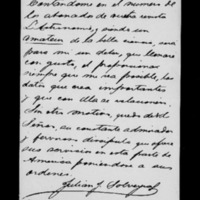 Contándome en el número de
los abonados de nuestra revista
L'Astronomie y siendo un
amateur de la bella ciencia, será
para mí un deber, que llenaré
con gusto, el proporcionar
siempre que me sea posible, los
datos que crea importantes
y que con ella se relacionen.
Sin otro motivo, quedo de Ud
Señor, su constante admirador
y fervoroso discípulo que ofrece
sus servicios en esta parte de
America poniéndose a sus
ordenes.
Julian J.